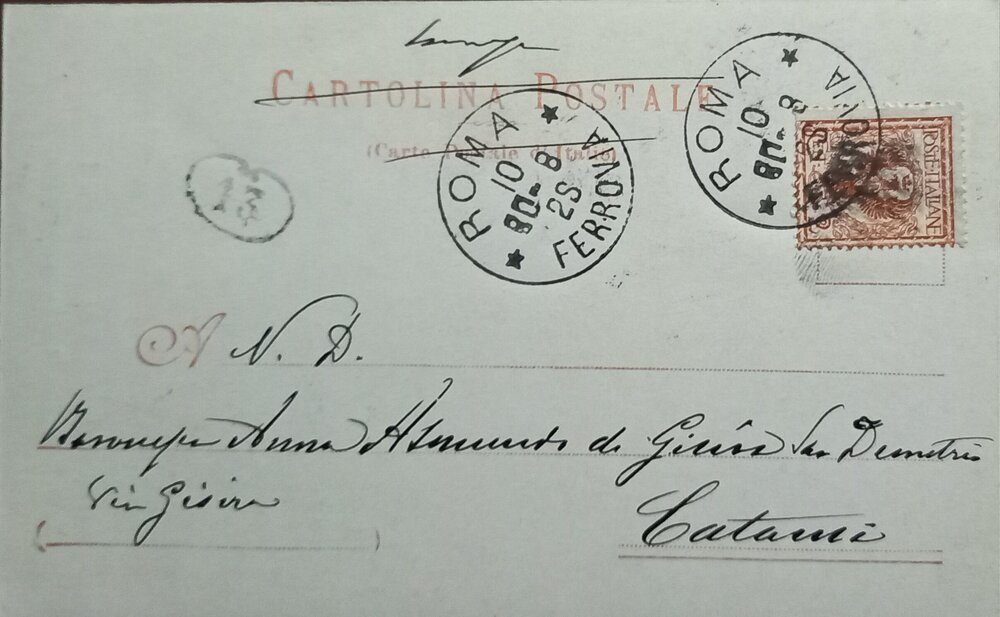 Stampe
CARTOLINA POSTALE
(Carte Postale d'Italie)
ROMA
10 - 8
80-
2S
FERROVIA
ROMA
10 8
80-
FERROVIA
POSTE ITALIANE
13
A N. D.
Baronessa Anna Asmundo di Gisira San Demetrio
Via Gisira
Catania